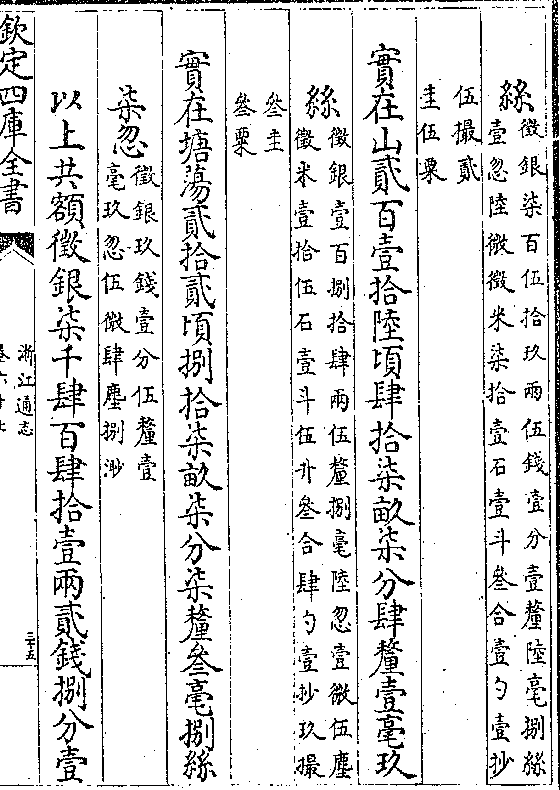 絲徵銀柒百伍拾玖兩伍錢壹分壹釐陸毫捌絲
壹忽陸微徵米柒拾壹石壹斗叁合壹勺壹抄
伍撮貳
圭伍粟
實在山貳百壹拾陸頃肆拾柒畝柒分肆釐壹毫玖
絲徵銀壹百捌拾肆兩伍釐捌毫陸忽壹微伍塵
徵米壹拾伍石壹斗伍升叁合肆勺壹抄玖撮
叁圭
叁粟
實在塘蕩貳拾貳頃捌拾柒畝柒分柒釐叁毫捌絲
柒忽徵銀玖錢壹分伍釐壹
毫玖忽伍微肆塵捌渺
以上共額徵銀柒千肆百肆拾壹兩貳錢捌分壹
欽定四庫全書
浙江通志
三十五